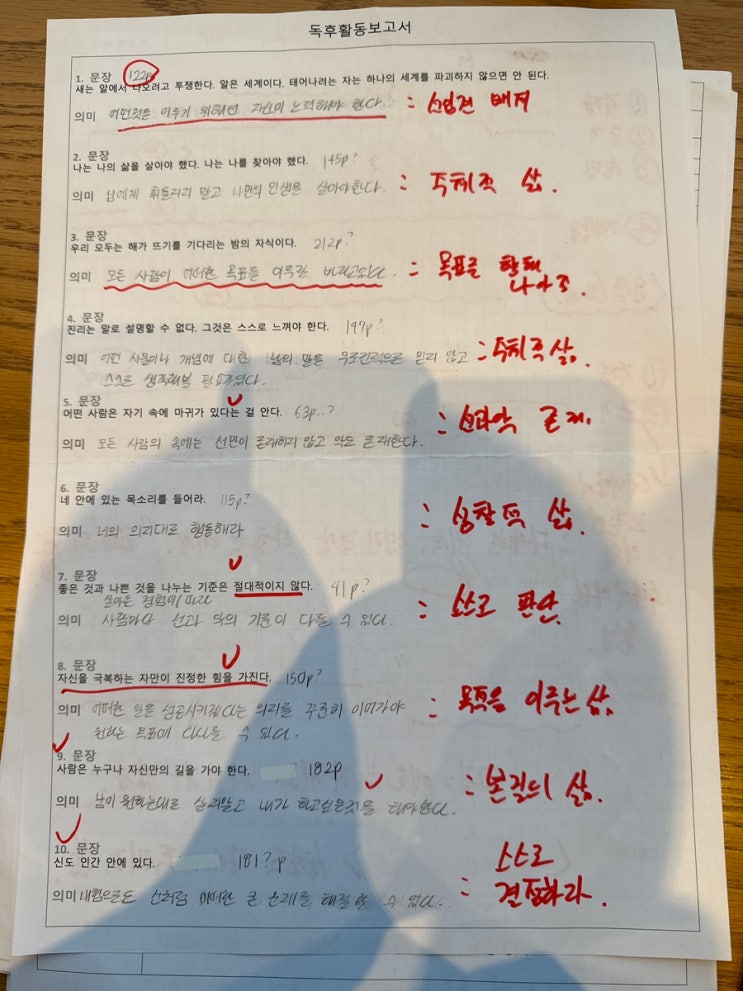 독후활동보고서
1. 문장 122p
새는 알에서 나오려고 투쟁한다. 알은 세계이다. 태어나려는 자는 하나의 세계를 파괴하지 않으면 안 된다.
의미 어떤것을 이루기 위해선 자신이 노력해야 한다 : 선입견 배제
2. 문장
나는 나의 삶을 살아야 했다. 나는 나를 찾아야 했다. 145p?
의미 남에게 휘둘리지 말고 나만의 인생을 살아야한다. : 주체적 삶.
3. 문장
우리 모두는 해가 뜨기를 기다리는 밤의 자식이다. 212p?
의미 모든 사람이 어떠한 목표를 이루길 바라고있다. : 목표를 향해
4. 문장
진리는 말로 설명할 수 없다. 그것은 스스로 느껴야 한다. 197p?
의미 어떤 사물이나 개념에 대한 남의 말은 무조건적으로 믿지 않고 : 주체적 삶.
스스로 생각해볼 필요가있다.
5. 문장
어떤 사람은 자기 속에 마귀가 있다는 걸 안다. 63p..?
의미 모든 사람의 속에는 선만이 존재하지 않고 악도 존재한다. : 선과악 존재.
6. 문장
네 안에 있는 목소리를 들어라. 115p?
의미 너의 의지대로 행동해라 : 성찰적 삶.
7. 문장
좋은 것과 나쁜 것을 나누는 기준은 절대적이지 않다. 91p?
살아온 경험에 따라
의미 사람마다 선과 악의 기준이 다를 수 있다. : 스스로 판단.
8. 문장
자신을 극복하는 자만이 진정한 힘을 가진다. 150p?
의미 어떠한 일을 성공시키겠다는 의지를 꾸준히 이어가야 : 목적을 이루는 삶.
원하는 목표에 다다를 수 있다.
9. 문장
사람은 누구나 자신만의 길을 가야 한다. 182p
의미 남이 원하는대로 살지말고 내가 하고싶은것을 해야한다. : 본질의 삶.
10. 문장
신도 인간 안에 있다. 181?p
의미 내힘으로도 신처럼 어떠한 큰 문제를 해결할 수 있다. : 스스로
결정하라.